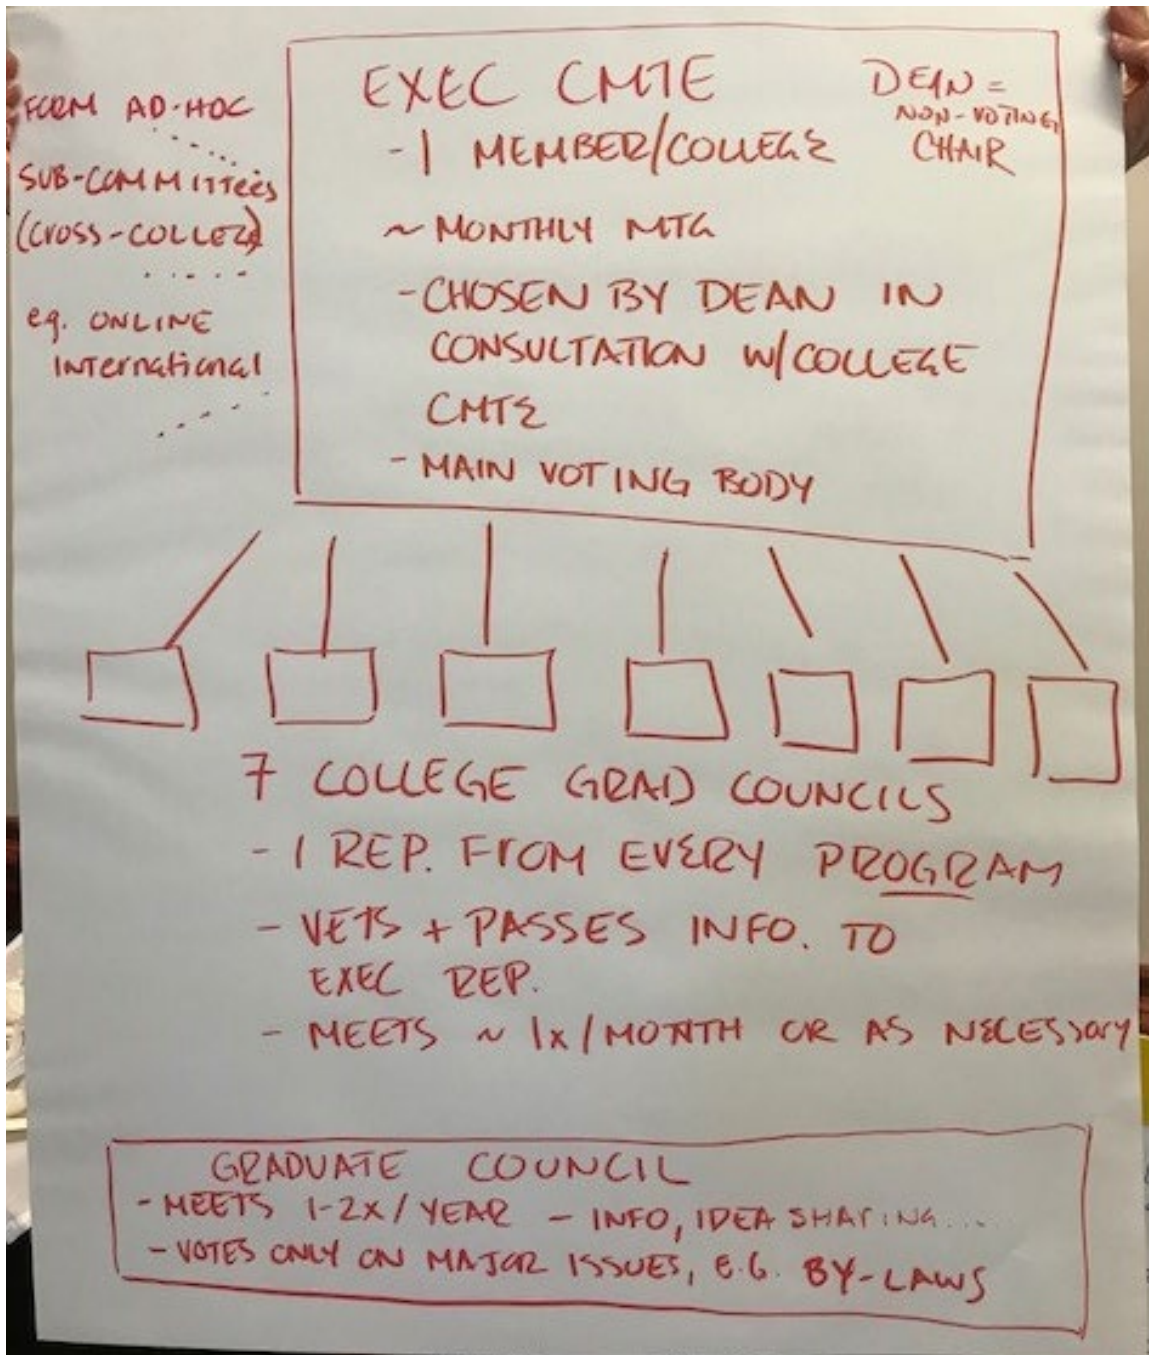 FORM AD-HOC
SUB-COMMITTees
(CROSS-COLLEGE)
eg. ONLINE
International
EXEC CMTE
- 1 MEMBER/COLLEGE
~ MONTHLY MTG
- CHOSEN BY DEAN IN
CONSULTATION W/COLLEGE
CMTE
- MAIN VOTING BODY
DEAN =
NON-VOTING
CHAIR
7 COLLEGE GRAD COUNCILS
- 1 REP. FROM EVERY PROGRAM
- VETS + PASSES INFO. TO
EXEC REP.
- MEETS ~ 1x/MONTH OR AS NECESSARY
GRADUATE COUNCIL
- MEETS 1-2X/YEAR - INFO, IDEA SHARING....
- VOTES ONLY ON MAJOR ISSUES, E.G. BY-LAWS